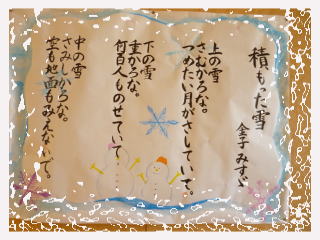 積もった雪
金子 みすゞ
上の雪
さむかろな。
つめたい月がさしていて。
下の雪
重かろな。
何百人ものせていて
中の雪
さみしかろな。
空も地面もみえないで。